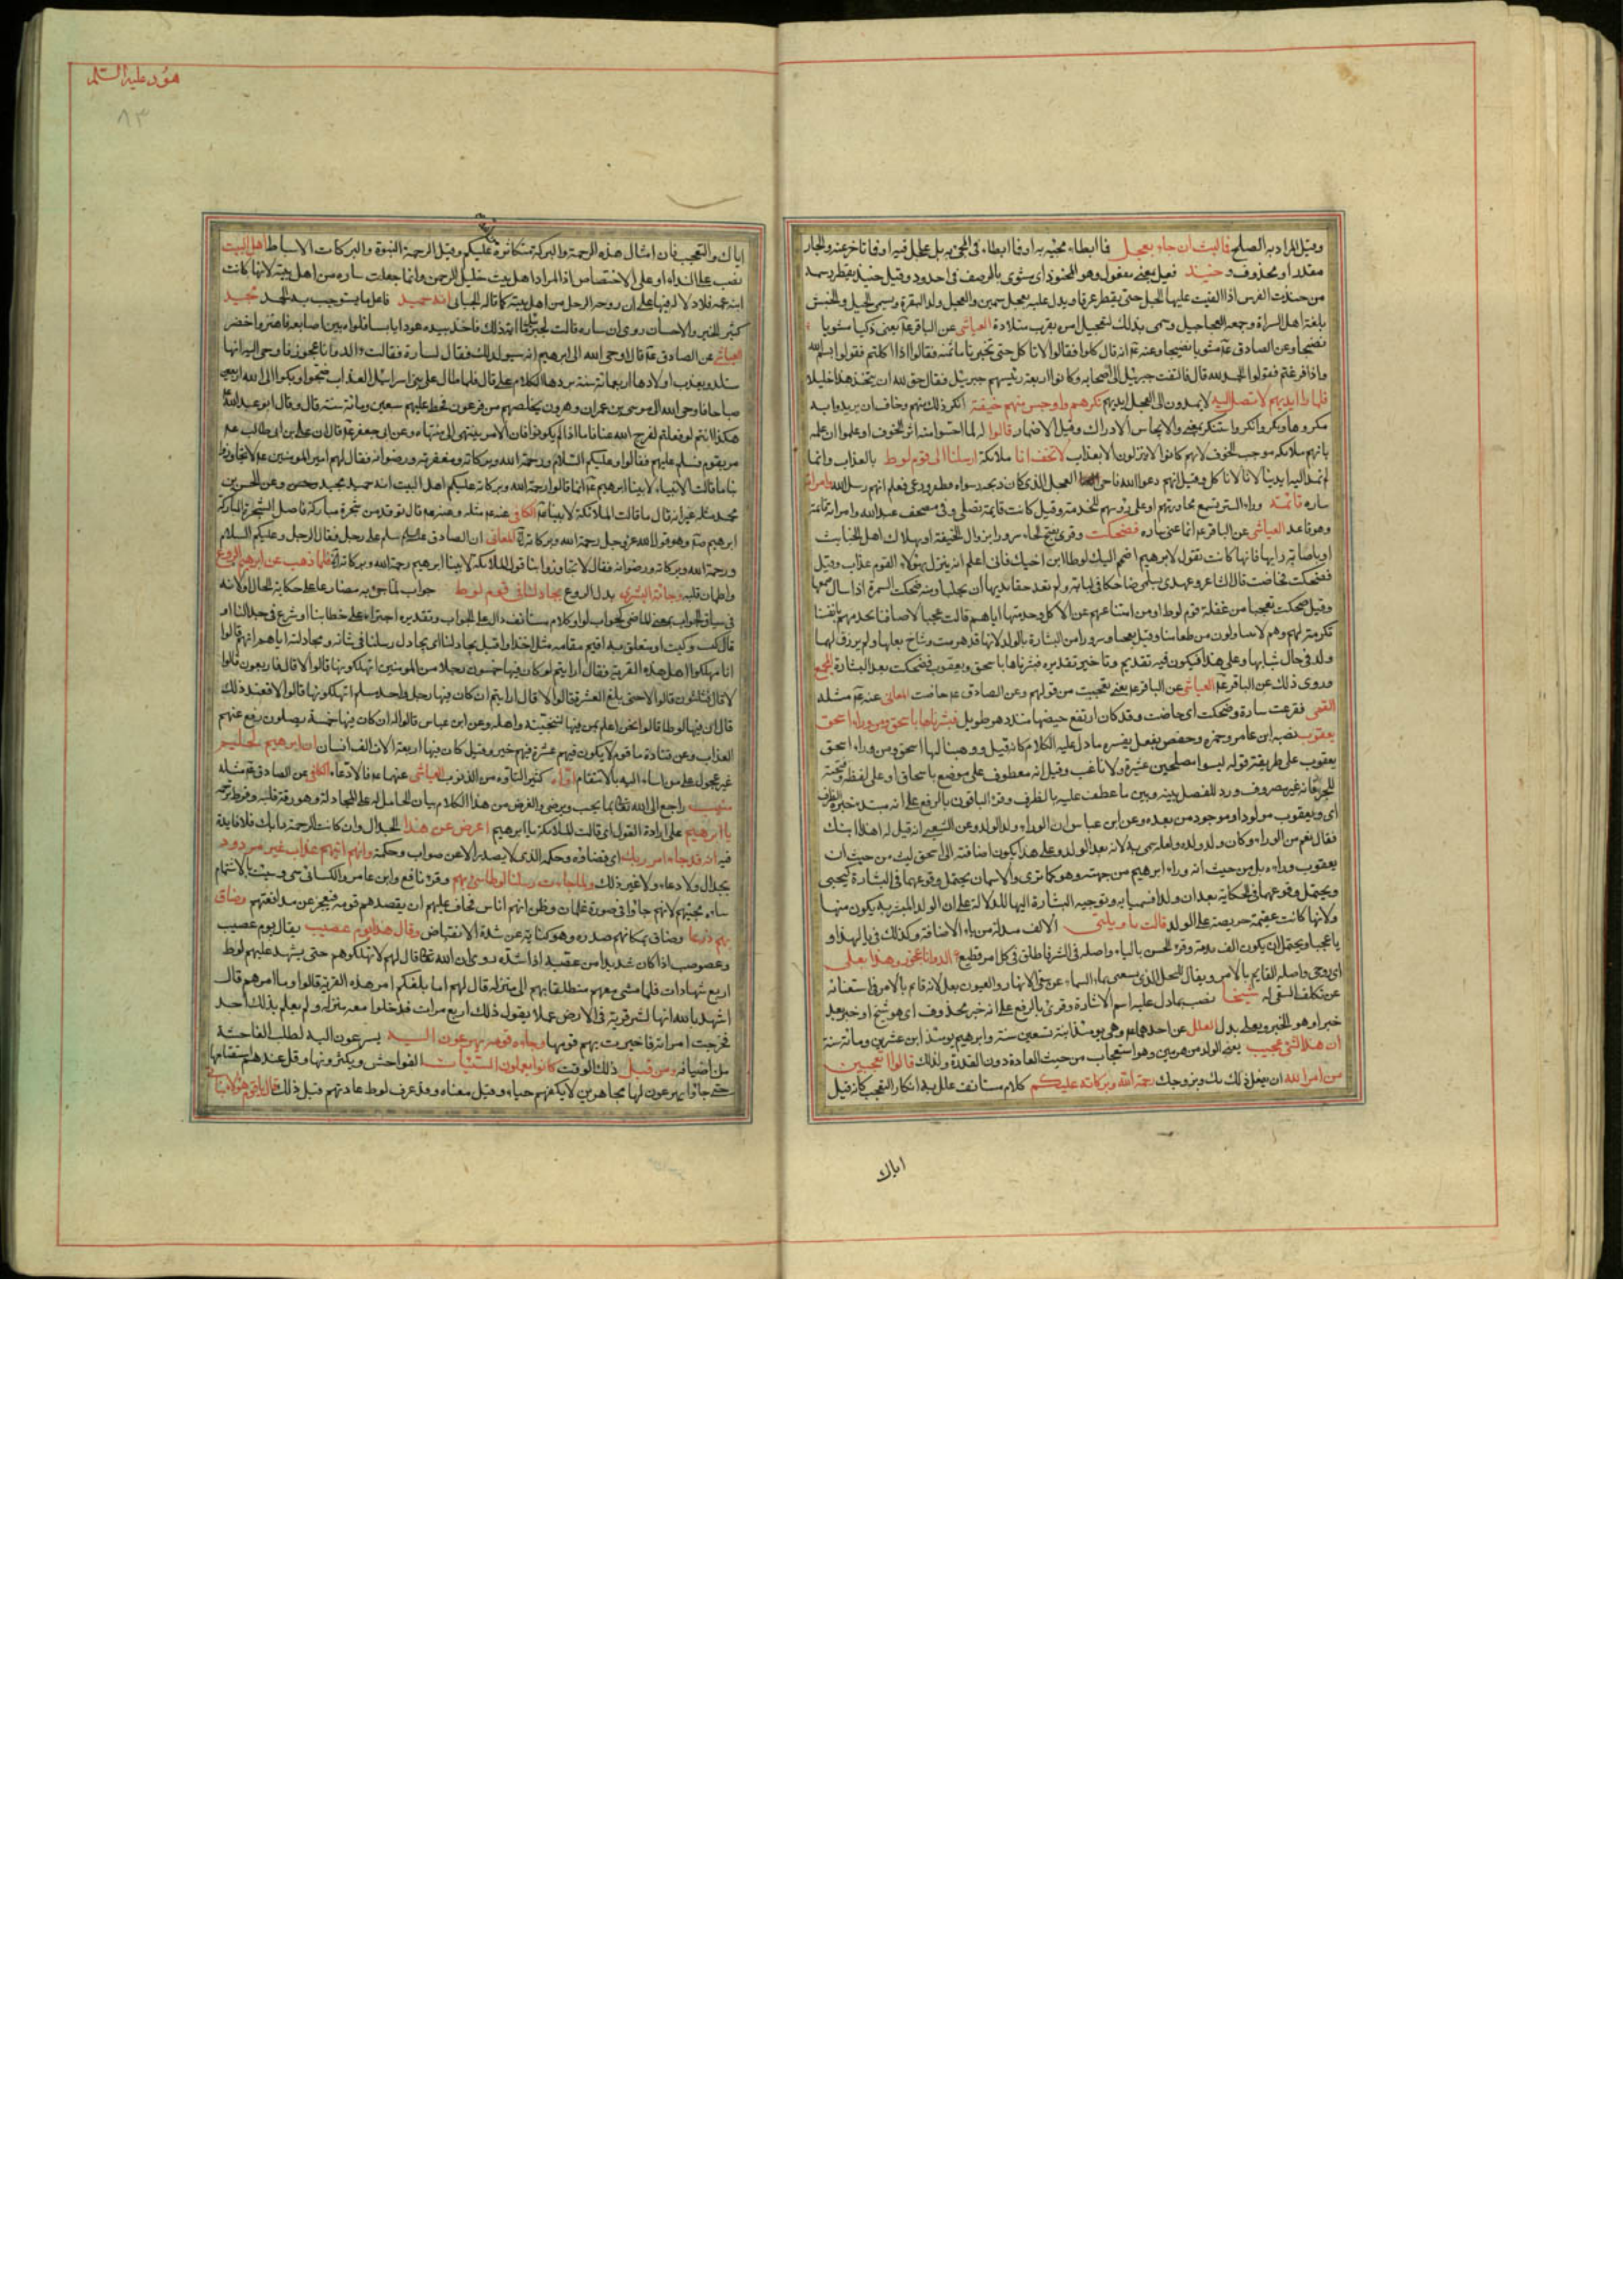 وقيل المراد به الصلح فما لبث ان جاء بعجل فما ابطاء مجيئه به او فما ابطاء فى المجئ به بل عجل فيه او فما تاخر عنه والجار
مقدر او محذوف وحنيذ فعيل بمعنى مفعول وهو المحنوذ اى مشوى بالرضف فى اخدود وقيل حنيذ يقطر
من حنذت الفرس اذا القيت عليها الجل حتى يقطر عرقا ويدل عليه بعجل سمين والعجل ولد البقرة ويسمى
بلغة اهل السراة وجمعه العجاجيل وسمى بذلك لتعجيل امره بقرب ميلاده العياشى عن الباقر يعنى ذكيا مشويا
نضيجا وعن الصادق مشويا نضيجا وعنه انه قال كلوا فقالوا لا ناكل حتى تخبرنا ما ثمنه فقال اذا اكلتم فقولوا بسم الله
واذا فرغتم فقولوا الحمد لله قال فالتفت جبرئيل الى اصحابه وكانوا اربعة رئيسهم جبرئيل فقال حق لله ان يتخذ هذا خليلا
فلما را ايديهم لا تصل اليه لا يمدون الى العجل ايديهم نكرهم واوجس منهم خيفة انكر ذلك منهم وخاف ان يريدوا به
مكروها ونكر وانكر واستنكر بمعنى والايجاس الادراك وقيل الاضمار قالوا له لما احسوا منه اثر الخوف او علموا ان علمه
بانهم ملائكة موجب الخوف لانهم كانوا لا ينزلون الا بعذاب لا تخف انا ملائكة ارسلنا الى قوم لوط بالعذاب وانما
لم نمد اليه ايدينا لانا لا ناكل وقيل انهم دعوا الله فاحيى العجل الذى كان ذبحه وشواه فطفر ورعى فعلم انهم رسل الله وامراته
ساره قائمة وراء الستر تسمع محاورتهم او على رؤسهم للخدمة وقيل كانت قائمة تصلى وفى مصحف عبد الله وامراته قائمة
وهو قاعد العياشى عن الباقر انما عنى ساره فضحكت وقرئ بفتح الحاء سرورا بزوال الخيفة او بهلاك اهل الخبايث
او باصابة رايها فانها كانت تقول لابرهيم اضمم اليك لوطا ابن اخيك فانى اعلم انه ينزل بهؤلاء القوم عذاب وقيل
وقيل ضحكت تعجبا من غفلة قوم لوط او من امتناعهم عن الاكل وخدمتها اياهم قالت عجبا لاضيافنا نخدمهم بانفسنا
تكرمة لهم وهم لا يتناولون من طعامنا وقيل تعجبا وسرورا من البشارة بالولد لانها قد هرمت وشاخ بعلها ولم يرزق لهما
ولد فى حال شبابها وعلى هذا فيكون فيه تقديم وتاخير تقديره فبشرناها باسحق ويعقوب فضحكت بعد البشارة المجمع
وروى ذلك عن الباقر العياشى عن الباقر يعنى تعجبت من قولهم وعن الصادق حاضت المعانى عنه مثله
القمى ففزعت سارة وضحكت اى حاضت وقد كان ارتفع حيضها منذ دهر طويل فبشرناها باسحق ومن وراء اسحق
يعقوب نصبه ابن عامر وحمزه وحفص بفعل يفسره ما دل عليه الكلام كانه قيل ووهبنا لها اسحق ومن وراء اسحق
يعقوب على طريقة قوله ليسوا مصلحين عشيرة ولا ناعب وقيل انه معطوف على موضع باسحاق او على لفظه وفتحته
للجر فانه غير مصروف ورد للفصل بينه وبين ما عطف عليه بالظرف وقرء الباقون بالرفع على انه مبتدا خبره الظرف
اى ويعقوب مولود او موجود من بعده وعن ابن عباس ان الوراء ولد الولد وعن الشعبى انه قيل له اهذا ابنك
فقال نعم من الوراء وكان ولد ولده
يعقوب وراءه بل من حيث انه وراء ابرهيم من جهته وهو كما ترى والاسمان يحتمل وقوعهما فى البشارة كيحيى
ويحتمل وقوعهما فى الحكاية بعد ان ولدا فسميا به وتوجيه البشارة اليها للدلالة على ان الولد المبشر به يكون منها
ولانها كانت عقيمة حريصة على الولد قالت يا ويلتى الالف مبدلة من ياء الاضافة وكذلك فى يا لهفا و
يا عجبا ويحتمل ان يكون الف ندبة وقرء الحسن بالياء واصله فى الشر فاطلق فى كل امر فظيع ءالد وانا عجوز وهذا بعلى
اى زوجى واصله القايم بالامر ويقال للنخل الذى يستغنى بماء السماء عن سقى الانهار والعيون بعل لانه قام بالامر فى استغنائه
عن تكلف السقى له شيخا نصب بما دل عليه اسم الاشارة وقرئ بالرفع على انه خبر محذوف اى هو شيخ او خبر بعد
خبر او هو الخبر وبعلى بدل العلل عن احدهما وهى يومئذ ابنة تسعين سنة وابرهيم يومئذ ابن عشرين ومائة سنة
ان هذا لشئ عجيب يعنى الولد من هرمين وهو استعجاب من حيث العادة دون القدرة ولذلك قالوا اتعجبين
من امر الله ان يفعل ذلك بك وبزوجك رحمة الله وبركاته عليكم كلام مستانف علل به انكار التعجب كانه قيل
اياك
هود عليه السلم
٨٣
اياك والتعجب فان امثال هذه الرحمة والبركة متكاثرة عليكم وقيل الرحمة النبوة والبركات الاسباط اهل البيت
نصب على النداء او على الاختصاص اذ المراد اهل بيت خليل الرحمن وانما جعلت ساره من اهل بيته لانها كانت
ابنة عمه فلا دلالة فيها على ان زوجة الرجل من اهل بيته كما قاله الجبائى انه حميد فاعل ما يستوجب به الحمد مجيد
كثير الخير والاحسان روى ان ساره قالت لجبرئيل ما اية ذلك فاخذ بيده عودا يابسا فلواه بين اصابعه فاهتز واخضر
العياشى عن الصادق قال اوحى الله الى ابرهيم انه سيولد لك فقال لسارة فقالت ءالد وانا عجوز فاوحى اليه انها
ستلد ويعذب اولادها اربعمائة سنة بردها الكلام على قال فلما طال على بنى اسرائيل العذاب ضجوا وبكوا الى الله اربعين
صباحا فاوحى الله الى موسى بن عمران وهرون يخلصهم من فرعون فحط عليهم سبعين ومائة سنة قال وقال ابو عبد الله
هكذا انتم لو فعلتم لفرج الله عنا فاما اذا لم يكونوا فان الامر ينتهى الى منتهاه وعن ابى جعفر قال ان على بن ابى طالب
مر بقوم فسلم عليهم فقالوا وعليكم السلام ورحمة الله وبركاته ومغفرته ورضوانه فقال لهم امير المومنين لا تجاوزوا
بنا ما قالت الانبياء لابينا ابرهيم انما قالوا رحمة الله وبركاته عليكم اهل البيت انه حميد مجيد وعن الحسن بن
محمد مثله غير انه قال ما قالت الملائكة لابينا الكافى عنه مثله وعنه قال توقد من شجرة مباركة فاصل الشجرة المباركة
ابرهيم وهو قول الله عز وجل رحمة الله وبركاته المعانى ان الصادق سلم على رجل فقال الرجل وعليكم السلام
ورحمة الله وبركاته ورضوانه فقال لا تجاوزوا بنا قول الملائكة لابينا ابرهيم رحمة الله وبركاته فلما ذهب عن ابرهيم الروع
واطمان قلبه وجائته البشرى بدل الروع يجادلنا فى قوم لوط جواب لما جئ به مضارعا على حكاية الحال او لانه
فى سياق الجواب بمعنى الماضى كجواب لو او كلام مستانف دال على الجواب وتقديره اجترا على خطابنا او شرع فى جدالنا او
قال كيت وكيت او متعلق به اقيم مقامه مثل اخذ او اقبل يجادلنا اى يجادل رسلنا فى شانه ومجادلته اياهم انهم قالوا
انا مهلكوا اهل هذه القرية فقال ارايتم لو كان فيها خمسون رجلا من المومنين اتهلكونها قالوا لا قال فاربعون قالوا
لا قال فثلثون قالوا لا حتى بلغ العشر فقالوا لا قال ارايتم ان كان فيها رجل واحد مسلم اتهلكونها قالوا لا فعند ذلك
قال ان فيها لوطا قالوا نحن اعلم بمن فيها لننجينه واهله وعن ابن عباس قالوا له ان كان فيها خمسة يصلون رفع عنهم
العذاب وعن قتادة ما قوم لا يكون فيهم عشرة فيهم خير وقيل كان فيها اربعة الاف الف انسان ان ابرهيم لحليم
غير عجول على من اساء اليه بالانتقام اواه كثير التاوه من الذنوب العياشى عنهما قالا دعاء الكافى عن الصادق مثله
منيب راجع الى الله تعالى بما يحب ويرضى والغرض من هذا الكلام بيان الحامل له على المجادلة وهو رقة قلبه وفرط ترحمه
يا ابرهيم على ارادة القول اى قالت الملائكة يا ابرهيم اعرض عن هذا الجدال وان كانت الرحمة دابك فلا فايدة
فيه انه قد جاء امر ربك اى قضاؤه وحكمه الذى لا يصدر الا عن صواب وحكمة وانهم اتيهم عذاب غير مردود
بجدال ولا دعاء ولا غير ذلك ولما جاءت رسلنا لوطا سئ بهم وقرء نافع وابن عامر والكسائى سئ وسيئت بالاشمام
ساءه مجيئهم لانهم جاؤا فى صورة غلمان وظن انهم اناس فخاف عليهم ان يقصدهم قومه فيعجز عن مدافعتهم وضاق
بهم ذرعا وضاق بمكانهم صدره وهو كناية عن شدة الانقباض وقال هذا يوم عصيب يقال يوم عصيب
وعصوصب اذا كان شديدا من عصبه اذا شده روى ان الله تعالى قال لهم لا تهلكوهم حتى يشهد عليهم لوط
اربع شهادات فلما مشى معهم منطلقا بهم الى منزله قال لهم اما بلغكم امر هذه القرية قالوا وما امرهم قال
اشهد بالله انها لشر قرية فى الارض عملا يقول ذلك اربع مرات فدخلوا معه منزله ولم يعلم بذلك احد
فخرجت امراته فاخبرت بهم قومها وجاءه قومه يهرعون اليه يسرعون اليه لطلب الفاحشة
من اضيافه ومن قبل ذلك الوقت كانوا يعملون السيئات الفواحش ويكثرونها
حتى جاؤا يهرعون لها مجاهرين لا يكفهم حياء وقيل معناه وقد عرف لوط عادتهم قبل ذلك قال يا قوم هؤلاء بناتى